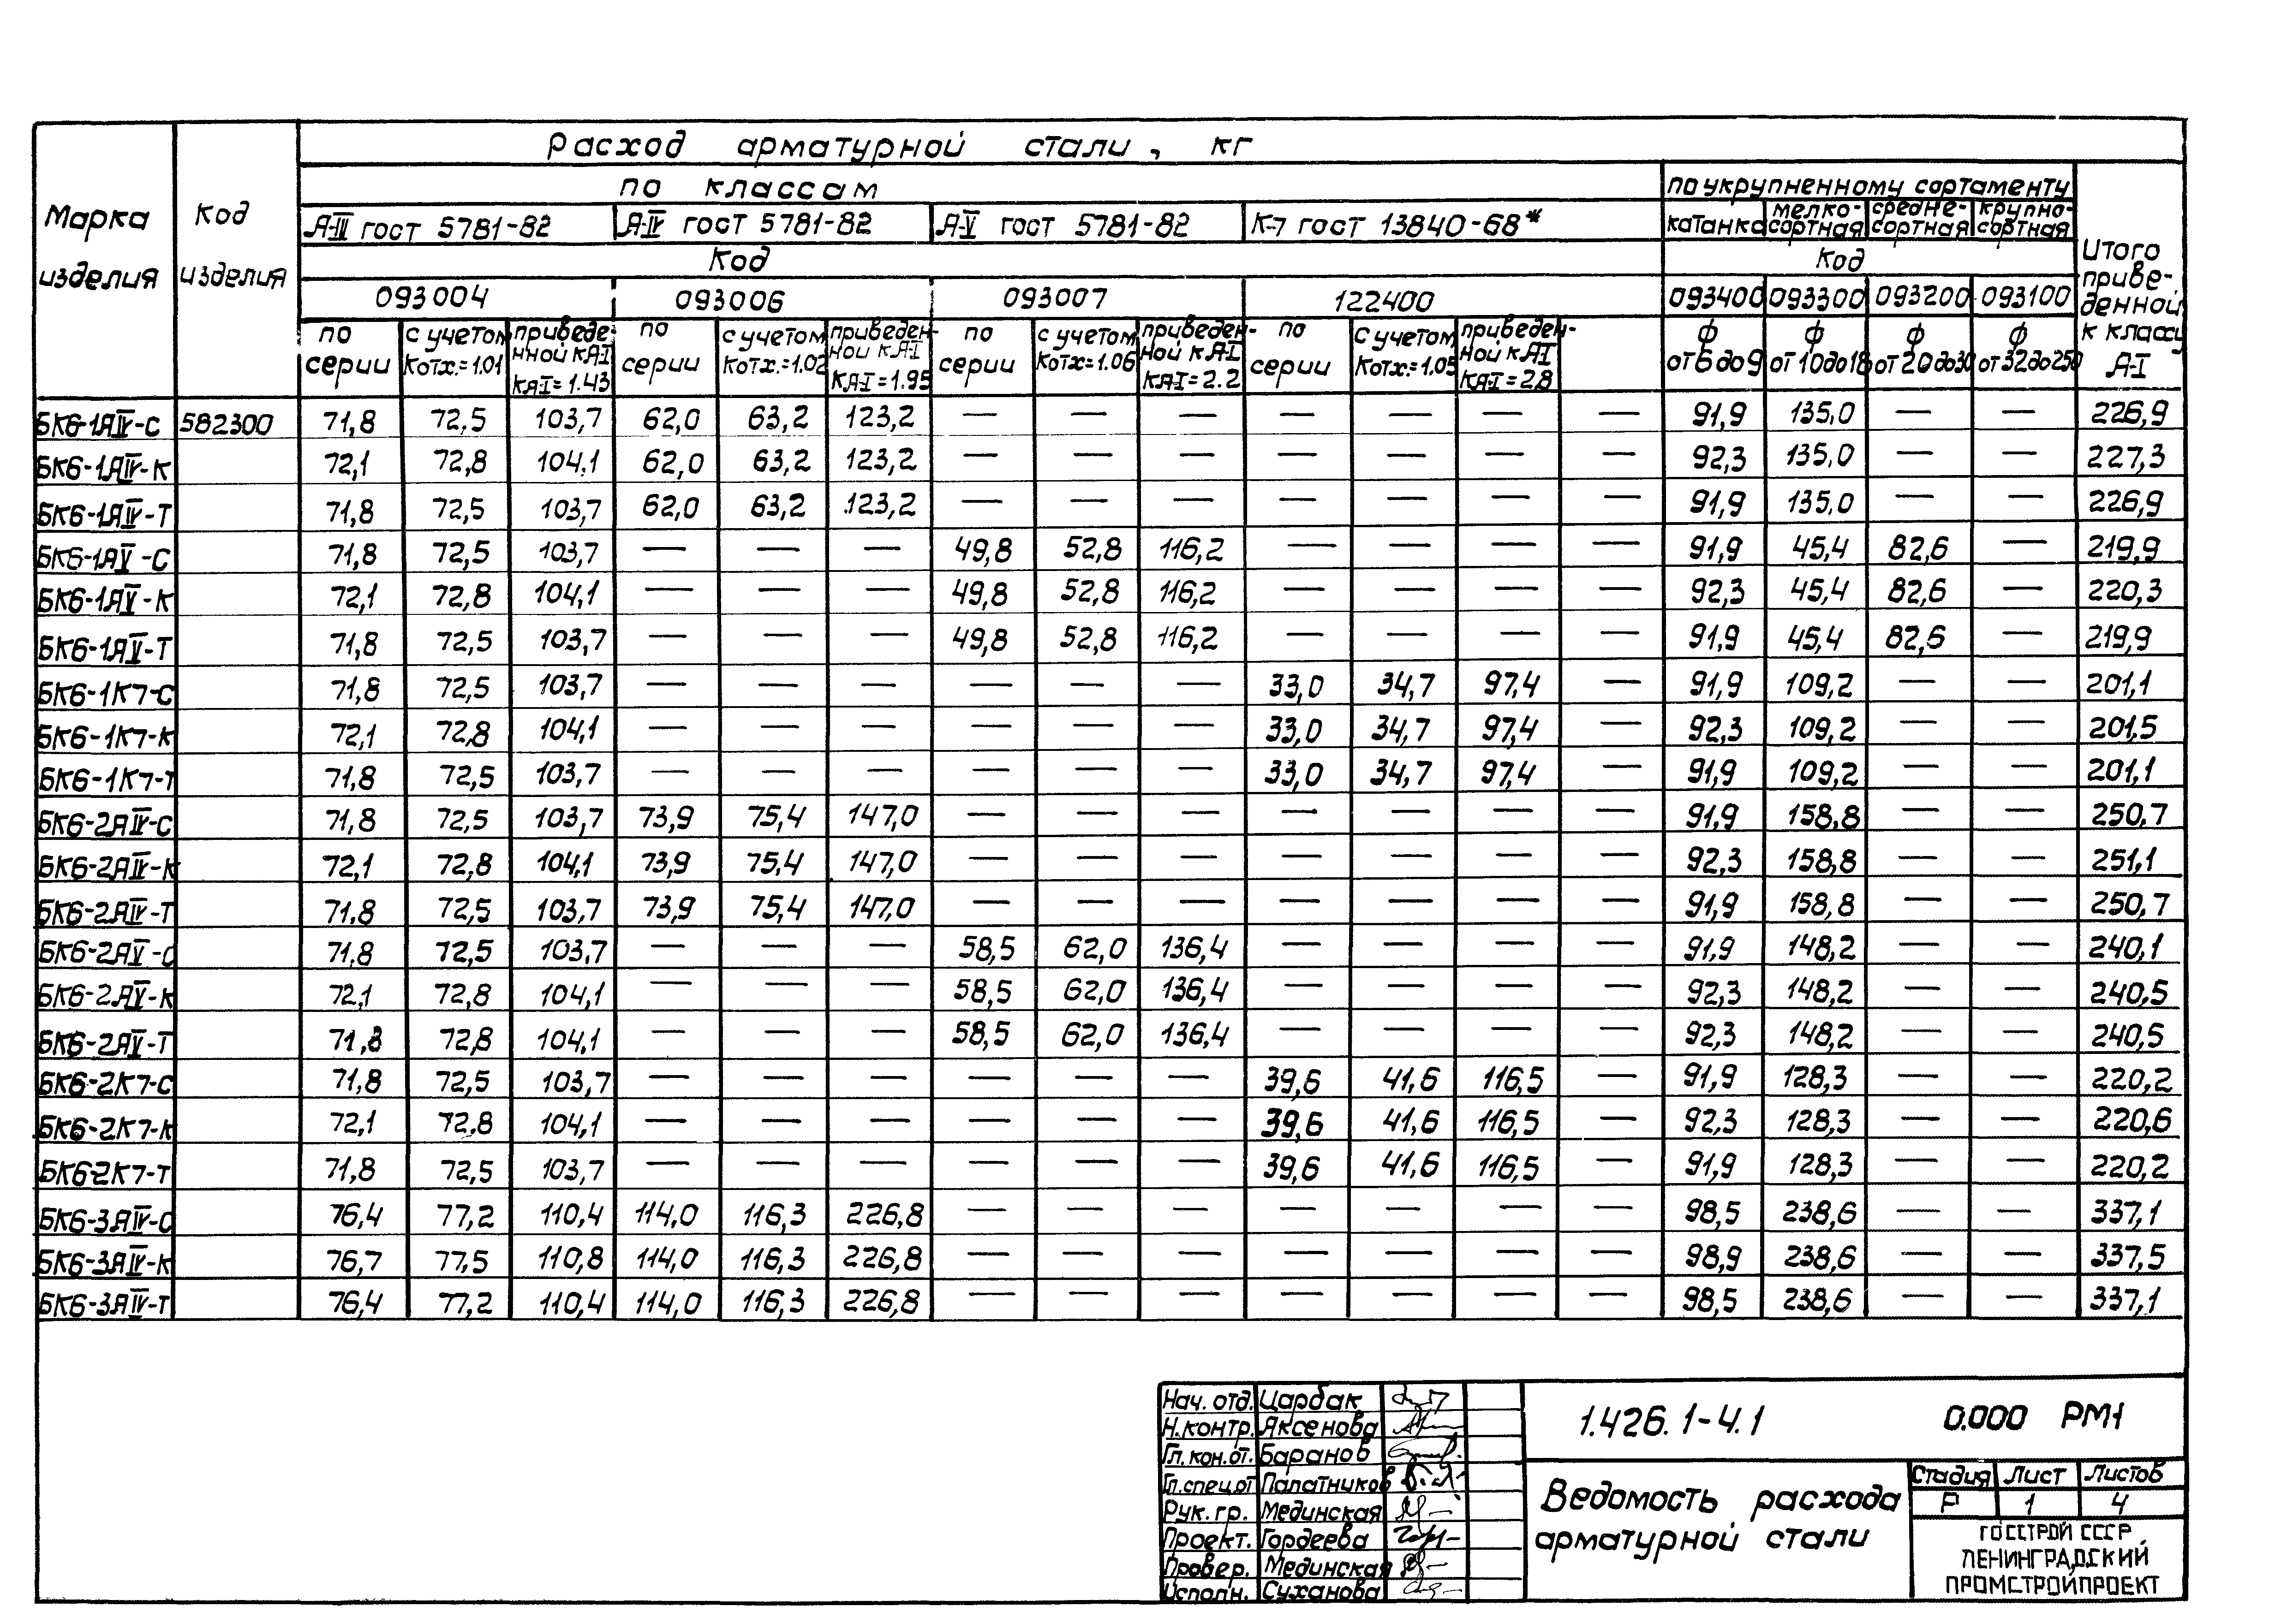 Расход арматурной стали, кг
Марка изделия
Код изделия
по классам
по укрупненному сортаменту
Итого приведенной к классу А-I
А-III ГОСТ 5781-82 А-IV ГОСТ 5781-82 А-V ГОСТ 5781-82 К-7 ГОСТ 13840-68*
катанка мелкосортная среднесортная крупносортная
Код Код
093004 093006 093007 122400 093400 093300 093200 093100
по серии с учетом Котх.=1.01 приведенной к А-I КА-I=1.43
по серии с учетом Котх.=1.02 приведенной к А-I КА-I=1.95
по серии с учетом Котх=1.06 приведенной к А-I КА-I=2.2
по серии с учетом Котх.=1.05 приведенной к АI КА-I=2.8
ф от 6 до 9 ф от 10 до 18 ф от 20 до 30 ф от 32 до 250
БК6-1АIV-С 582300 71,8 72,5 103,7 62,0 63,2 123,2 — — — — — — — 91,9 135,0 — — 226,9
БК6-1АIV-К 72,1 72,8 104,1 62,0 63,2 123,2 — — — — — — — 92,3 135,0 — — 227,3
БК6-1АIV-Т 71,8 72,5 103,7 62,0 63,2 123,2 — — — — — — — 91,9 135,0 — — 226,9
БК6-1АV-С 71,8 72,5 103,7 — — — 49,8 52,8 116,2 — — — — 91,9 45,4 82,6 — 219,9
БК6-1АV-К 72,1 72,8 104,1 — — — 49,8 52,8 116,2 — — — — 92,3 45,4 82,6 — 220,3
БК6-1АV-Т 71,8 72,5 103,7 — — — 49,8 52,8 116,2 — — — — 91,9 45,4 82,6 — 219,9
БК6-1К7-С 71,8 72,5 103,7 — — — — — — 33,0 34,7 97,4 — 91,9 109,2 — — 201,1
БК6-1К7-К 72,1 72,8 104,1 — — — — — — 33,0 34,7 97,4 — 92,3 109,2 — — 201,5
БК6-1К7-Т 71,8 72,5 103,7 — — — — — — 33,0 34,7 97,4 — 91,9 109,2 — — 201,1
БК6-2АIV-С 71,8 72,5 103,7 73,9 75,4 147,0 — — — — — — — 91,9 158,8 — — 250,7
БК6-2АIV-К 72,1 72,8 104,1 73,9 75,4 147,0 — — — — — — — 92,3 158,8 — — 251,1
БК6-2АIV-Т 71,8 72,5 103,7 73,9 75,4 147,0 — — — — — — — 91,9 158,8 — — 250,7
БК6-2АV-С 71,8 72,5 103,7 — — — 58,5 62,0 136,4 — — — — 91,9 148,2 — — 240,1
БК6-2АV-К 72,1 72,8 104,1 — — — 58,5 62,0 136,4 — — — — 92,3 148,2 — — 240,5
БК6-2АV-Т 71,8 72,8 104,1 — — — 58,5 62,0 136,4 — — — — 92,3 148,2 — — 240,5
БК6-2К7-С 71,8 72,5 103,7 — — — — — — 39,6 41,6 116,5 — 91,9 128,3 — — 220,2
БК6-2К7-К 72,1 72,8 104,1 — — — — — — 39,6 41,6 116,5 — 92,3 128,3 — — 220,6
БК6-2К7-Т 71,8 72,5 103,7 — — — — — — 39,6 41,6 116,5 — 91,9 128,3 — — 220,2
БК6-3АIV-С 76,4 77,2 110,4 114,0 116,3 226,8 — — — — — — — 98,5 238,6 — — 337,1
БК6-3АIV-К 76,7 77,5 110,8 114,0 116,3 226,8 — — — — — — — 98,9 238,6 — — 337,5
БК6-3АIV-Т 76,4 77,2 110,4 114,0 116,3 226,8 — — — — — — — 98,5 238,6 — — 337,1
Нач. отд. Царбак
Н.контр. Яксенова
Гл. кон. от. Баранов
Гл. спец. от Палатников
Рук. гр. Мединская
Проект. Гордеева
Провер. Мединская
Исполн. Суханова
1.426.1-4.1 0.000 РМ1
Ведомость расхода
арматурной стали
Стадия Лист Листов
Р 1 4
ГОССТРОЙ СССР
ЛЕНИНГРАДСКИЙ
ПРОМСТРОЙПРОЕКТ